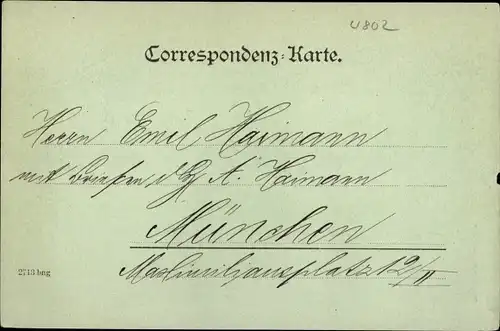 4802
Correspondenz-Karte.
Herrn Emil Haimann
mit Briefen d A. Haimann
München
Maximiliansplatz 12/II
2713 bng